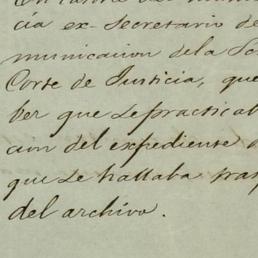 cia ex-Secretario de
municacion dela
Corte de Justicia, que
ber que se practicab
cion del expediente
que se hallaba tras
del archivo.